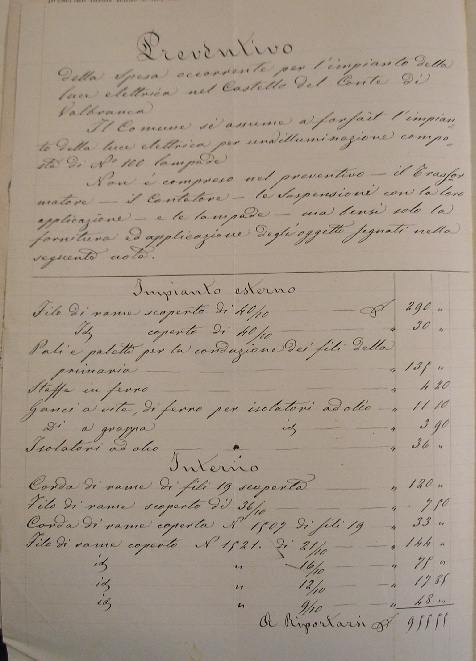 Preventivo
della spesa occorrente per l'impianto della
luce elettrica nel Castello del Conte di
Valbranca
Il Comune si assume a forfait l'impian-
to della luce elettrica per un'illuminazione compo-
sta di N° 100 lampade
Non è compreso nel preventivo – il Trasfor
matore – il Contatore – le sospensioni con la loro
applicazione – e le lampade – ma bensì solo la
fornitura ed applicazione degli oggetti segnati nella
seguente nota.
Impianto esterno
Filo di rame scoperto di 40/10 290 "
Id coperto di 40/10 " 30 "
Pali e paletti per la conduzione dei fili della
primaria " 135 "
Staffe in ferro " 4 20
Ganci a vite, di ferro per isolatori ad olio " 11 10
Di a grappa id " 3 90
Isolatori ad olio " 36 "
Interno
Corda di rame di fili 19 scoperta " 120 "
Filo di rame scoperto di 36/10 " 7 50
Corda di rame coperta N° 1507 di fili 19 " 33 "
Filo di rame coperto N 1521. di 21/10 " 144 "
id " 16/10 " 75 "
id " 12/10 " 17 85
id " 9/10 " 48 "
A Riportarsi 955 55